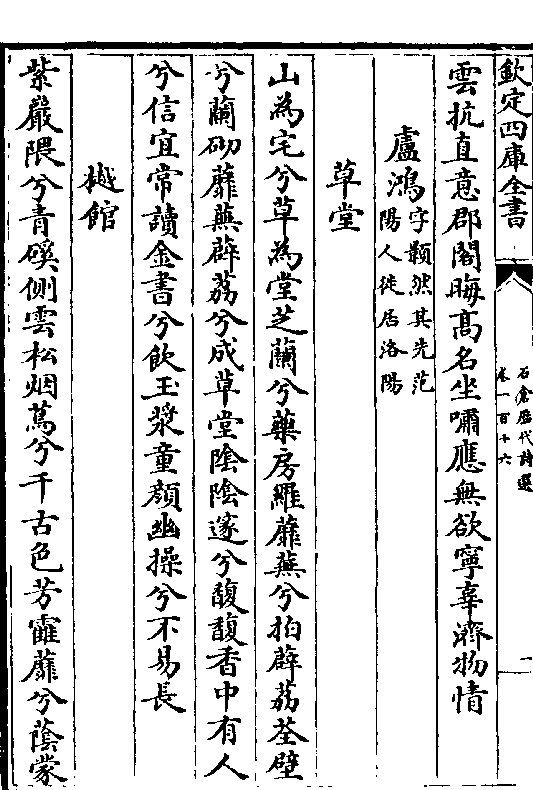 欽定四庫全書
石倉歷代詩選
卷一百十六
二
雲抗直意郡閣晦髙名坐嘯應無欲寧辜濟物情
盧鴻字顥然其先范
陽人徙居洛陽
草堂
山為宅兮草為堂芝蘭兮藥房羅蘼蕪兮拍薜荔荃壁
兮蘭砌蘼蕪薜荔兮成草堂陰陰邃兮馥馥香中有人
兮信宜常讀金書兮飲玉漿童顔幽操兮不易長
樾館
紫巖隈兮青磎側雲松烟蔦兮千古色芳靃蘼兮蔭蒙